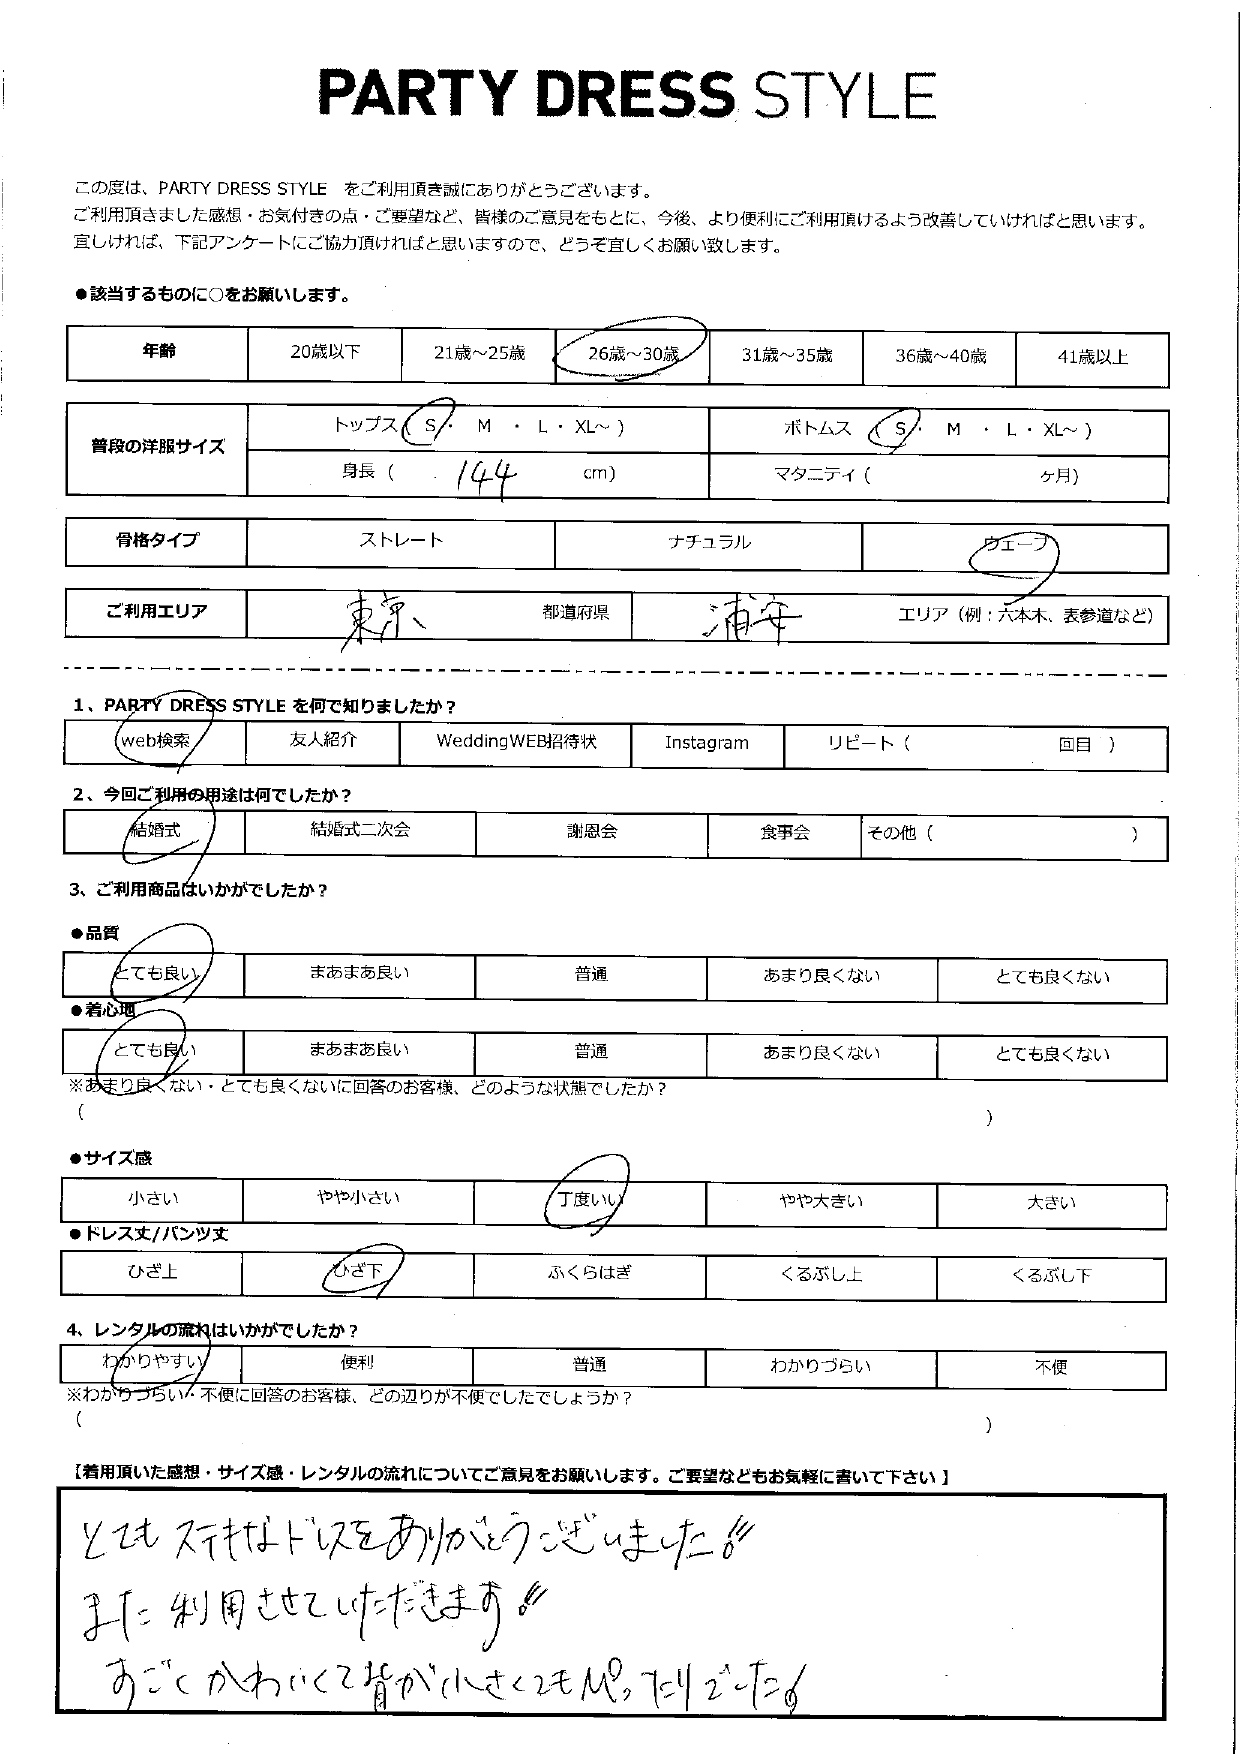 PARTY DRESS STYLE
この度は、PARTY DRESS STYLE をご利用頂き誠にありがとうございます。
ご利用頂きました感想・お気付きの点・ご要望など、皆様のご意見をもとに、今後、より便利にご利用頂けるよう改善していければと思います。
宜しければ、下記アンケートにご協力頂ければと思いますので、どうぞ宜しくお願い致します。
●該当するものに○をお願いします。
年齢 20歳以下 21歳～25歳 26歳～30歳 31歳～35歳 36歳～40歳 41歳以上
普段の洋服サイズ トップス（ S ・ M ・ L ・ XL～ ） ボトムス （ S ・ M ・ L ・ XL～ ）
身長（ 144 cm） マタニティ（ ヶ月）
骨格タイプ ストレート ナチュラル ウェーブ
ご利用エリア 東京 都道府県 浦安 エリア（例：六本木、表参道など）
1、PARTY DRESS STYLE を何で知りましたか？
web検索 友人紹介 WeddingWEB招待状 Instagram リピート（ 回目 ）
2、今回ご利用の用途は何でしたか？
結婚式 結婚式二次会 謝恩会 食事会 その他（ ）
3、ご利用商品はいかがでしたか？
●品質
とても良い まあまあ良い 普通 あまり良くない とても良くない
●着心地
とても良い まあまあ良い 普通 あまり良くない とても良くない
※あまり良くない・とても良くないに回答のお客様、どのような状態でしたか？
（ ）
●サイズ感
小さい やや小さい 丁度いい やや大きい 大きい
●ドレス丈/パンツ丈
ひざ上 ひざ下 ふくらはぎ くるぶし上 くるぶし下
4、レンタルの流れはいかがでしたか？
わかりやすい 便利 普通 わかりづらい 不便
※わかりづらい・不便に回答のお客様、どの辺りが不便でしたでしょうか？
（ ）
【着用頂いた感想・サイズ感・レンタルの流れについてご意見をお願いします。ご要望などもお気軽に書いて下さい】
とてもステキなドレスをありがとうございました!!
また利用させていただきます!!
すごくかわいくて背が小さくてもぴったりでした!